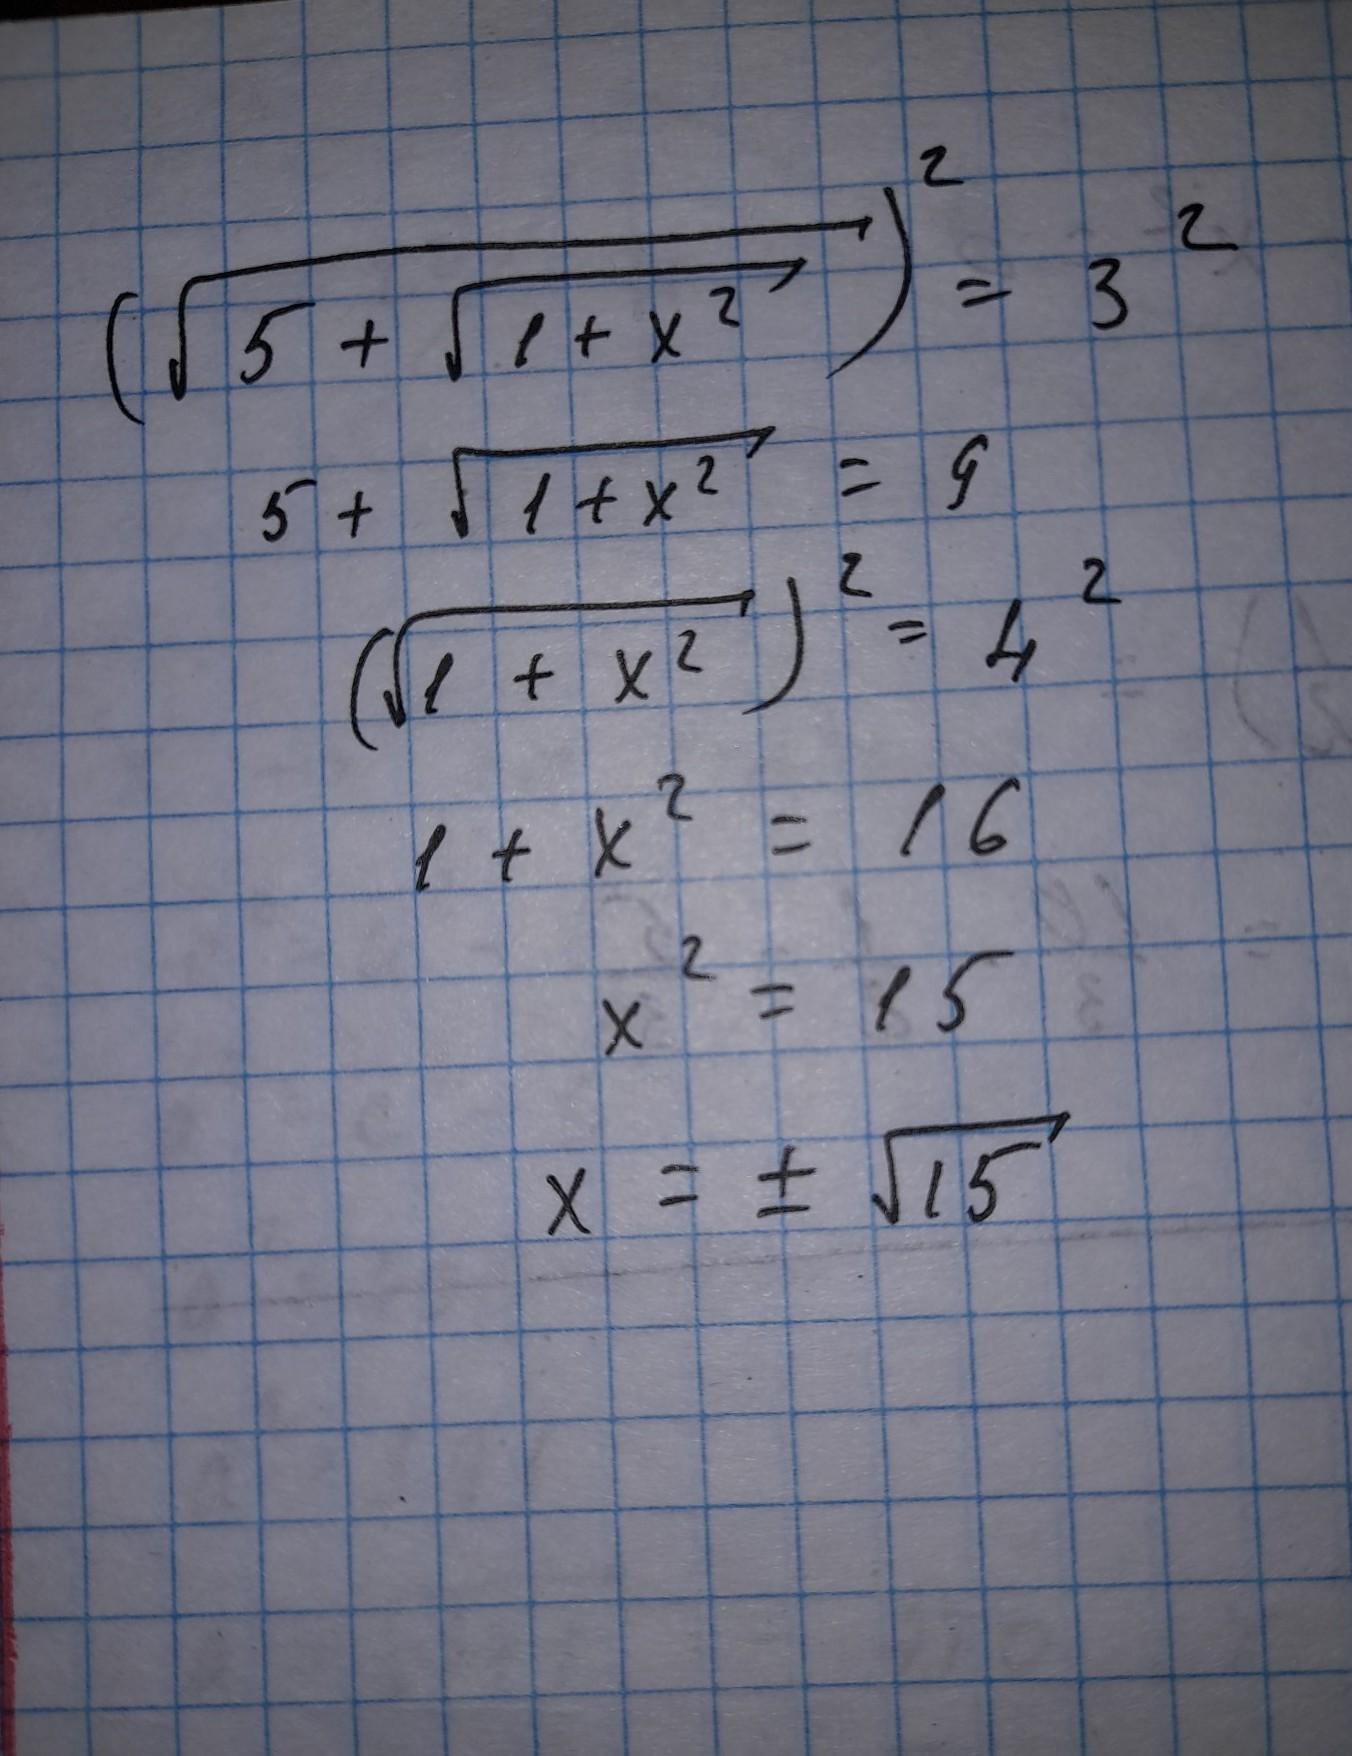 (√(5 + √(1 + x²)))² = 3²
5 + √(1 + x²) = 9
(√(1 + x²))² = 4²
1 + x² = 16
x² = 15
x = ± √15